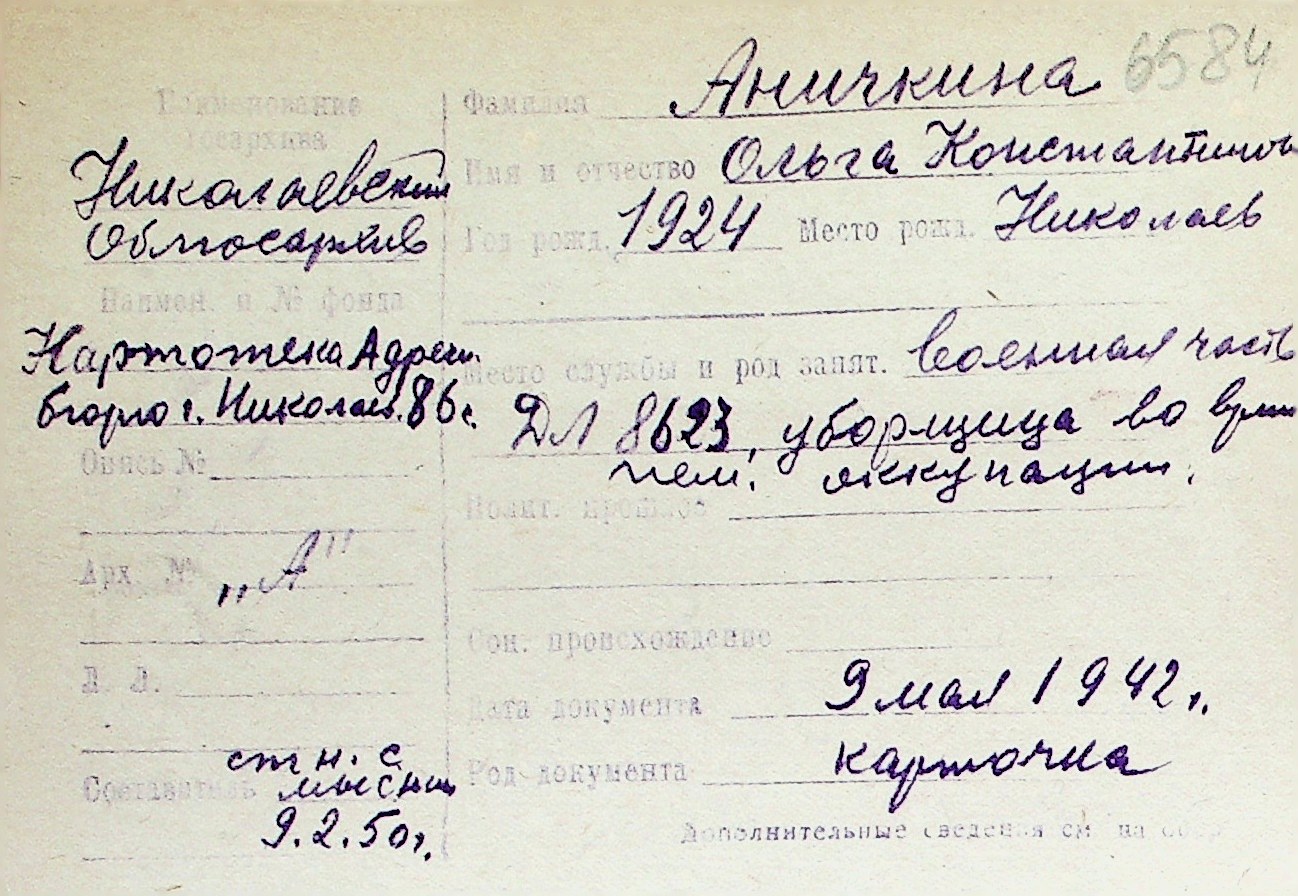 6584
Фамилия Аничкина
Имя и отчество Ольга Константинов
Год рожд. 1924 Место рожд. Николаев
Место службы и род занят. военная часть
ДЛ 8623, уборщица во врем
нем. оккупации.
Полит. прошлое
Соц. происхождение
Дата документа 9 мая 1942 г.
Род документа карточка
Дополнительные сведения см. на
Наименование
госархива
Николаевский
Облгосархив
Наимен. и № фонда
Картотека Адресн.
бюро г. Николаев. 86 с.
Опись №
Арх. № „А"
Л. Л.
Составитель
ст н. с.
9.2.50г.